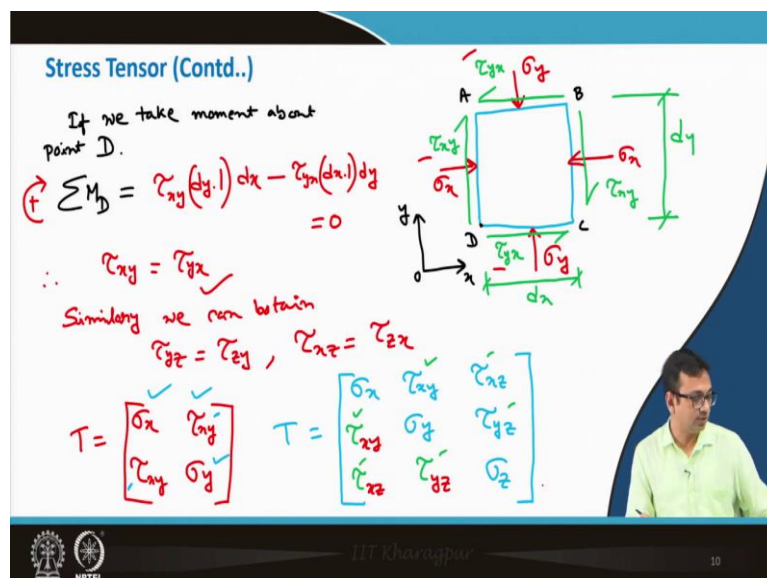 Stress Tensor (Contd..)
If we take moment about
point D.
∑M_D = τ_xy(dy.1)dx - τ_yx(dx.1)dy
= 0
+
∴ τ_xy = τ_yx
Similarly we can obtain
τ_yz = τ_zy , τ_xz = τ_zx
T = [σ_x τ_xy
τ_xy σ_y]
T = [σ_x τ_xy τ_xz
τ_xy σ_y τ_yz
τ_xz τ_yz σ_z]
τ_yx σ_y
A B
τ_xy
σ_x
σ_x
τ_xy
dy
D C
τ_yx σ_y
dx
y
0 x
IIT Kharagpur
NPTEL
10